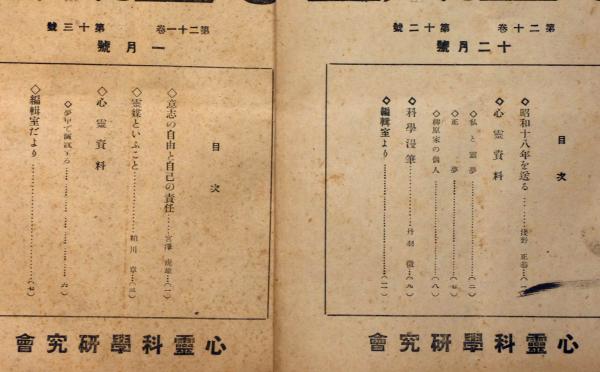 第二十卷　第十二號
十二月號
目次
◇昭和十八年を送る………淺野 正恭…(一)
◇心靈資料
◇私と靈夢………(二)
◇正夢………(七)
◇柳原家の偉人………(八)
◇科學漫筆………丹羽 徹…(九)
◇編輯室より………(一一)
心靈科學研究會
第二十一卷　第十三號
一月號
目次
◇意志の自由と自己の責任……宮澤 虎雄…(一)
◇靈媒といふこと………粕川 章…(三)
◇心靈資料
◇夢中で………(六)
◇編輯室だより………(七)
心靈科學研究會